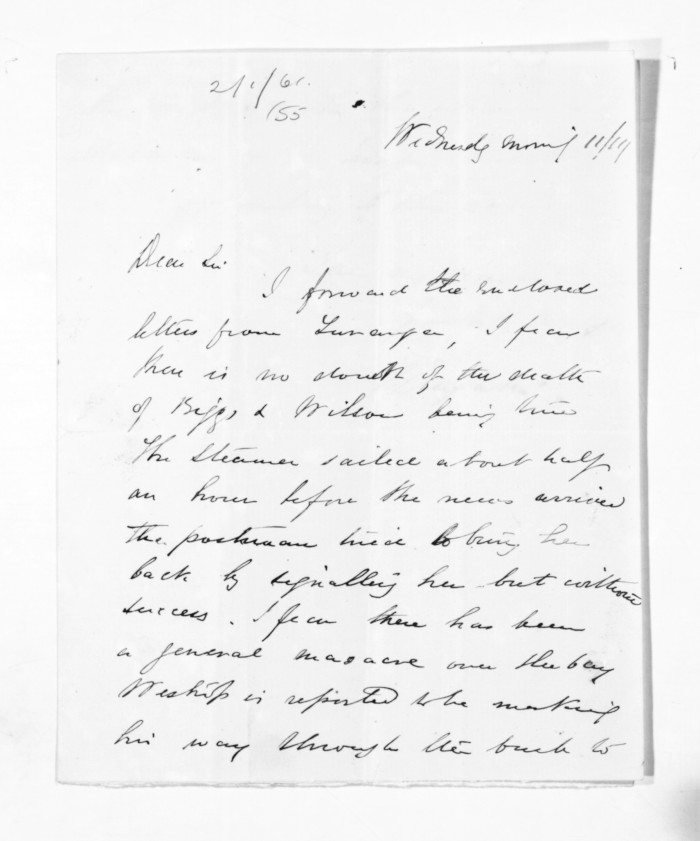 2/1/61.
155
Wednesdy morning 11/11
Dear Sir
I forward the enclosed
letters from Turanga, I fear
there is no doubt of the death
of Biggs & Wilson being true
The Steamer sailed about half
an hour before the news arrived
the postman tried to bring her
back by signalling her but without
success. I fear there has been
a general masacre over the bay
Westrup is reported to be making
his way through the bush to